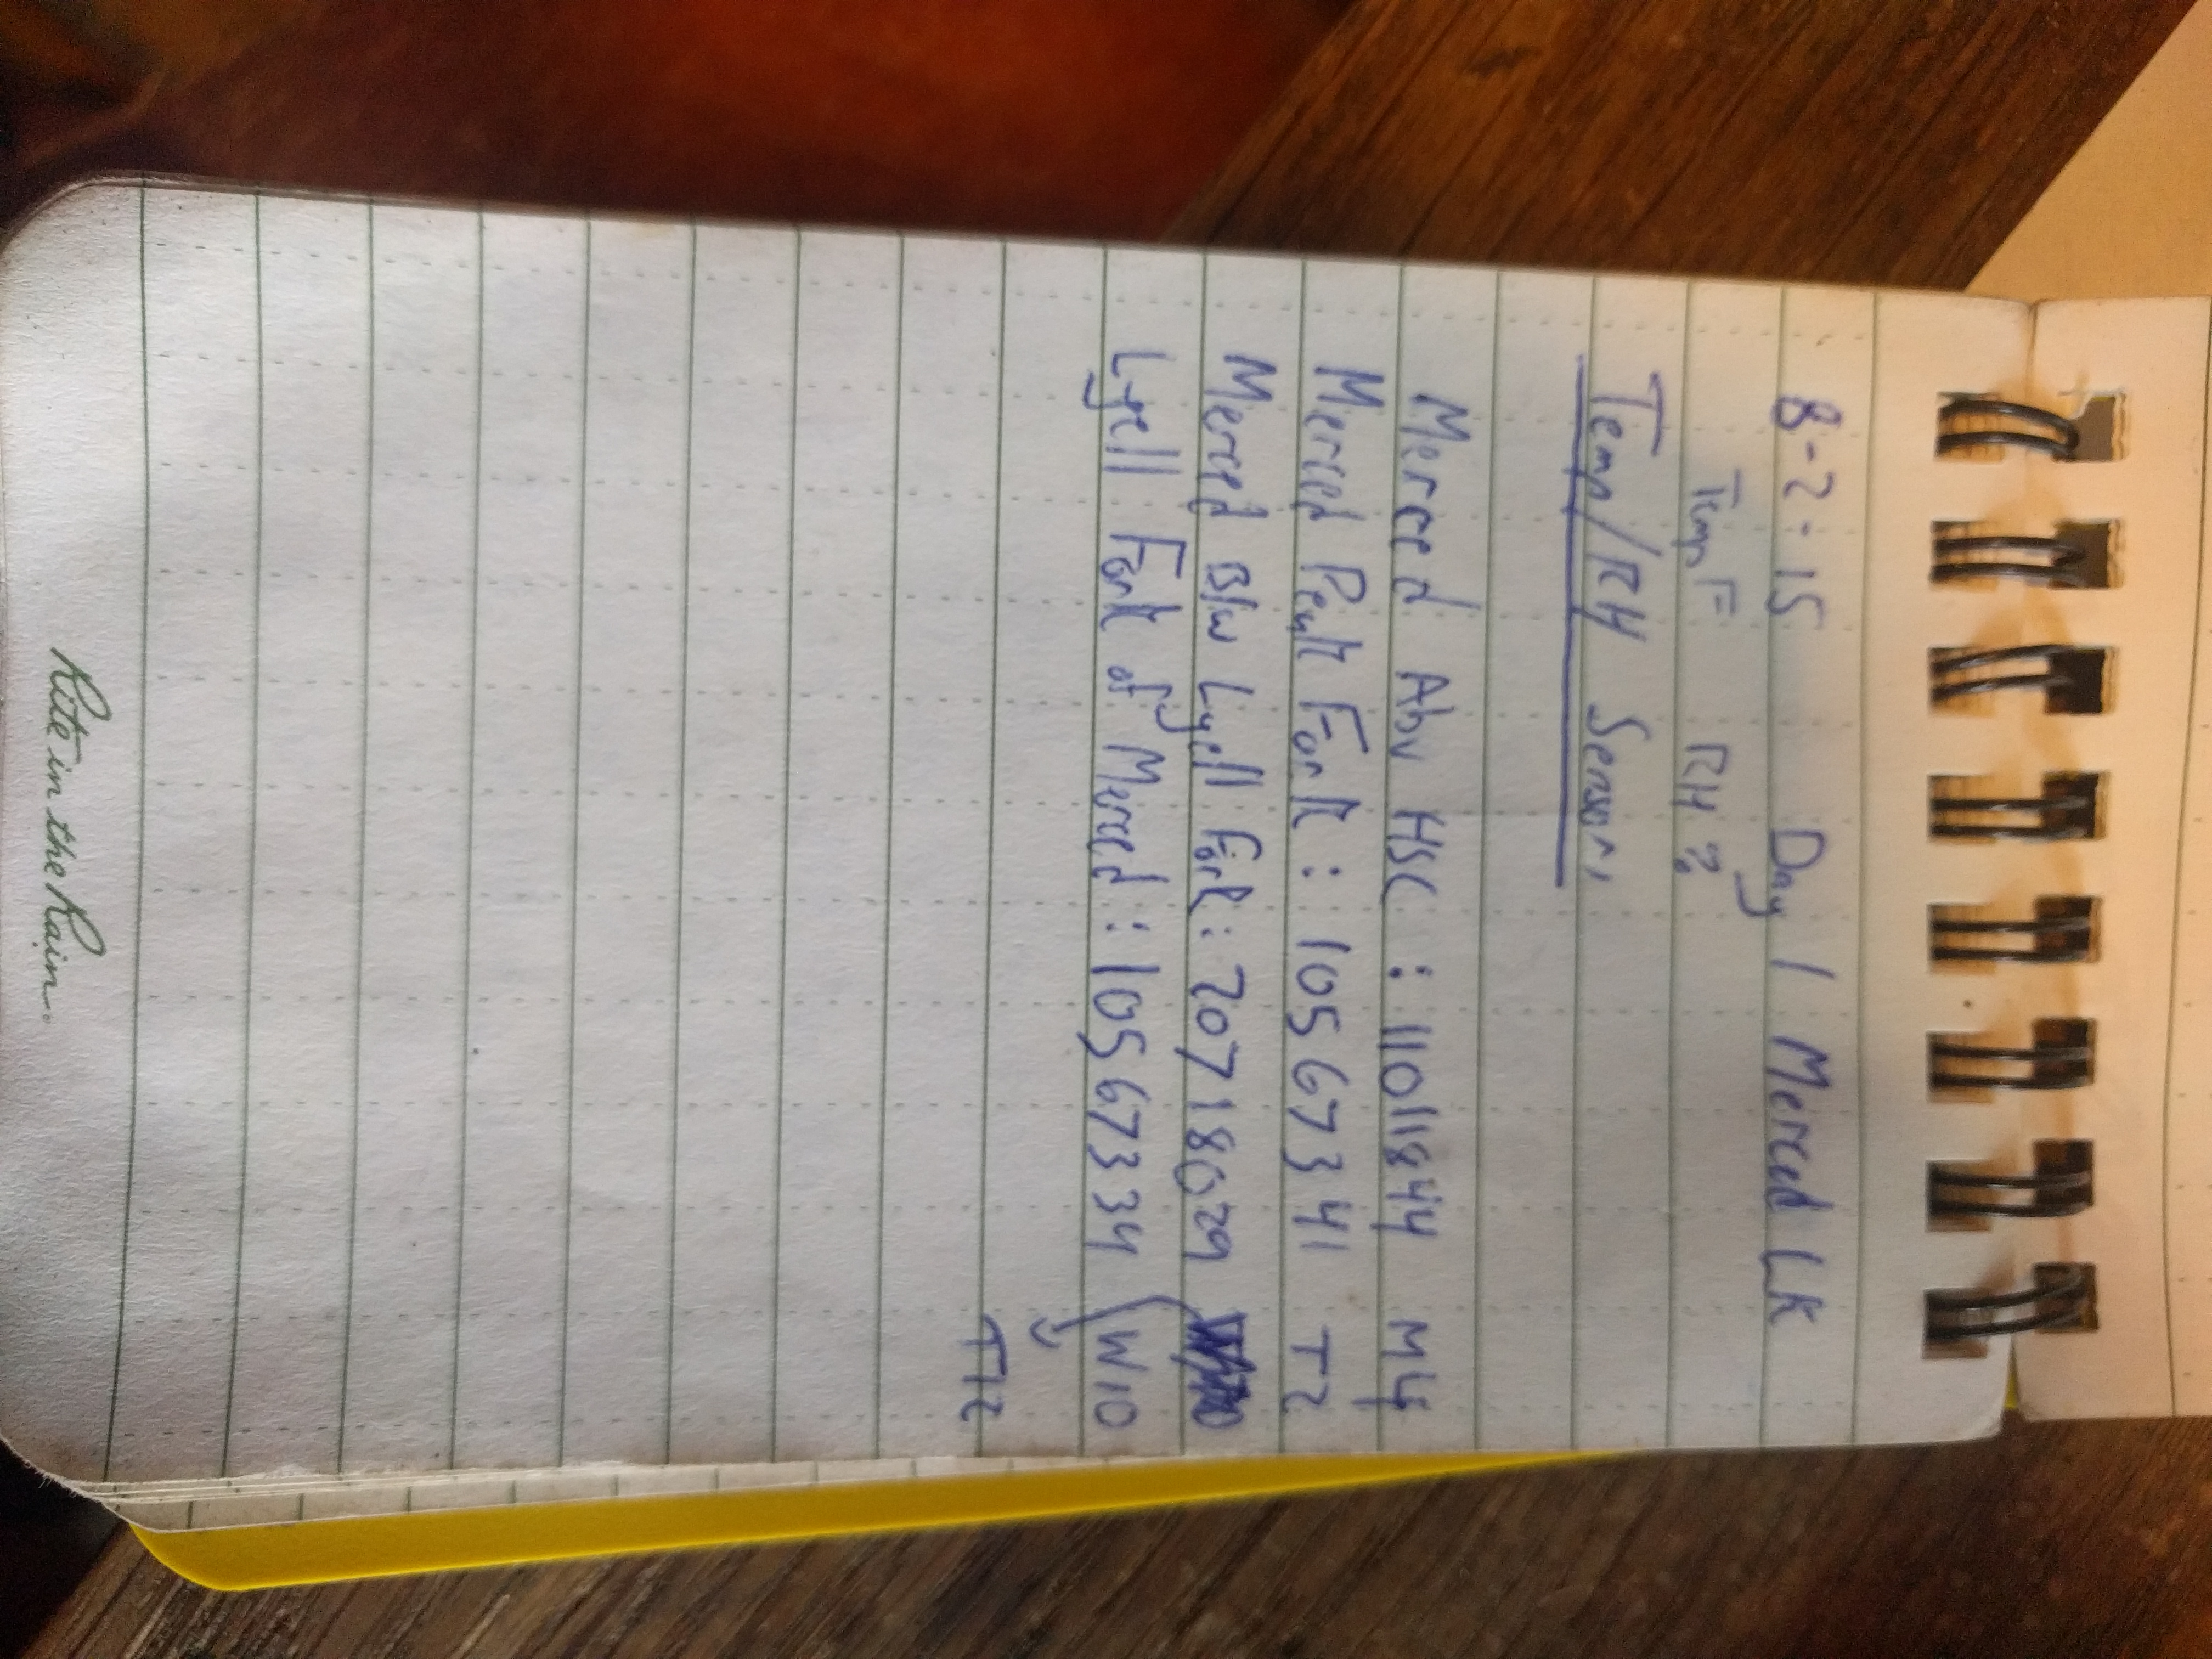 8-2-15 Day 1 Merced LK
Temp F RH %
Temp/RH Sensors
Merced Abv HSC : 11011844 M4
Merced Peak Fork : 10567341 T2
Merced Blw Lyell Fork : 20718029
Lyell Fork of Merced : 10567334 W10
T12
Rite in the Rain.